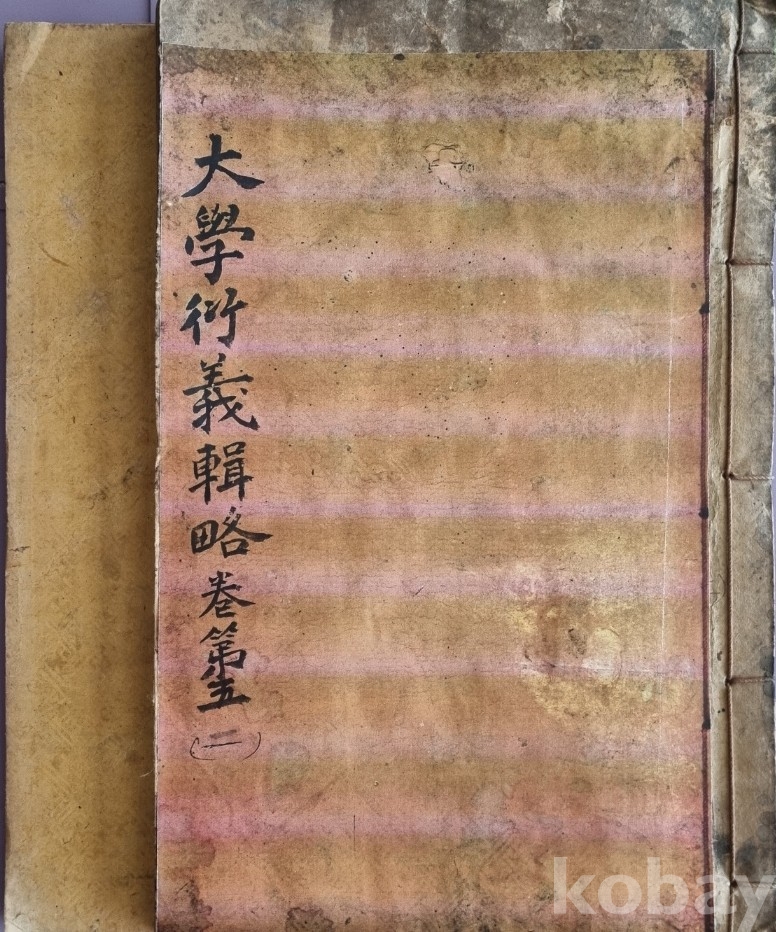 大學衍義輯略 卷第五
(二)
kobay